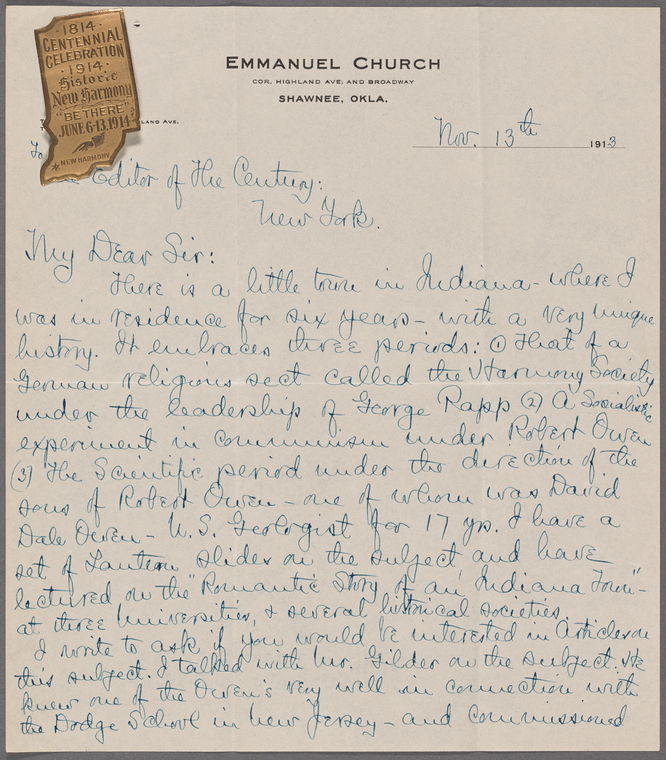 1814
CENTENNIAL
CELEBRATION
1914
Historic
New Harmony
"BE THERE"
JUNE 6-13, 1914
NEW HARMONY
EMMANUEL CHURCH
COR. HIGHLAND AVE. AND BROADWAY
SHAWNEE, OKLA.
LAND AVE.
Nov. 13th 1913
To Editor of The Century:
New York.
My Dear Sir:
There is a little town in Indiana - where I
was in residence for six years - with a very unique
history. It embraces three periods: (1) That of a
German religious sect called the Harmony Society
under the leadership of George Rapp (2) A Socialistic
experiment in communism under Robert Owen
(3) The Scientific period under the direction of the
sons of Robert Owen - one of whom was David
Dale Owen - U.S. Geologist for 17 yrs. I have a
set of Lantern slides on the subject and have
lectured on the "Romantic Story of an Indiana Town" -
at three Universities, & several historical societies.
I write to ask if you would be interested in Articles on
this subject. I talked with Mr. Gilder on the subject. He
knew one of the Owen's very well in connection with
the Dodge School in New Jersey - and commissioned